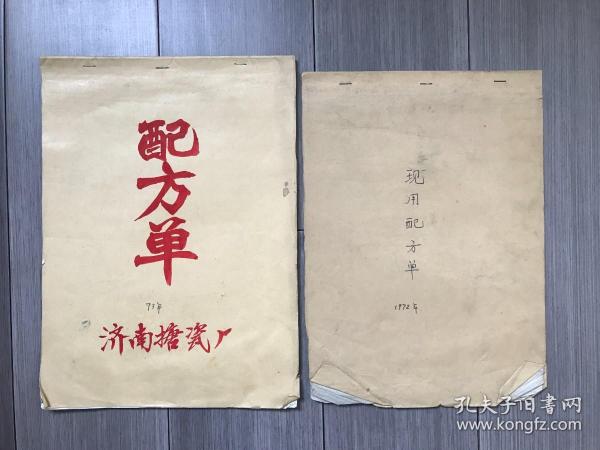 配方单
73年
济南搪瓷厂
现用配方单
1972年
孔夫子旧书网
www.kongfz.com